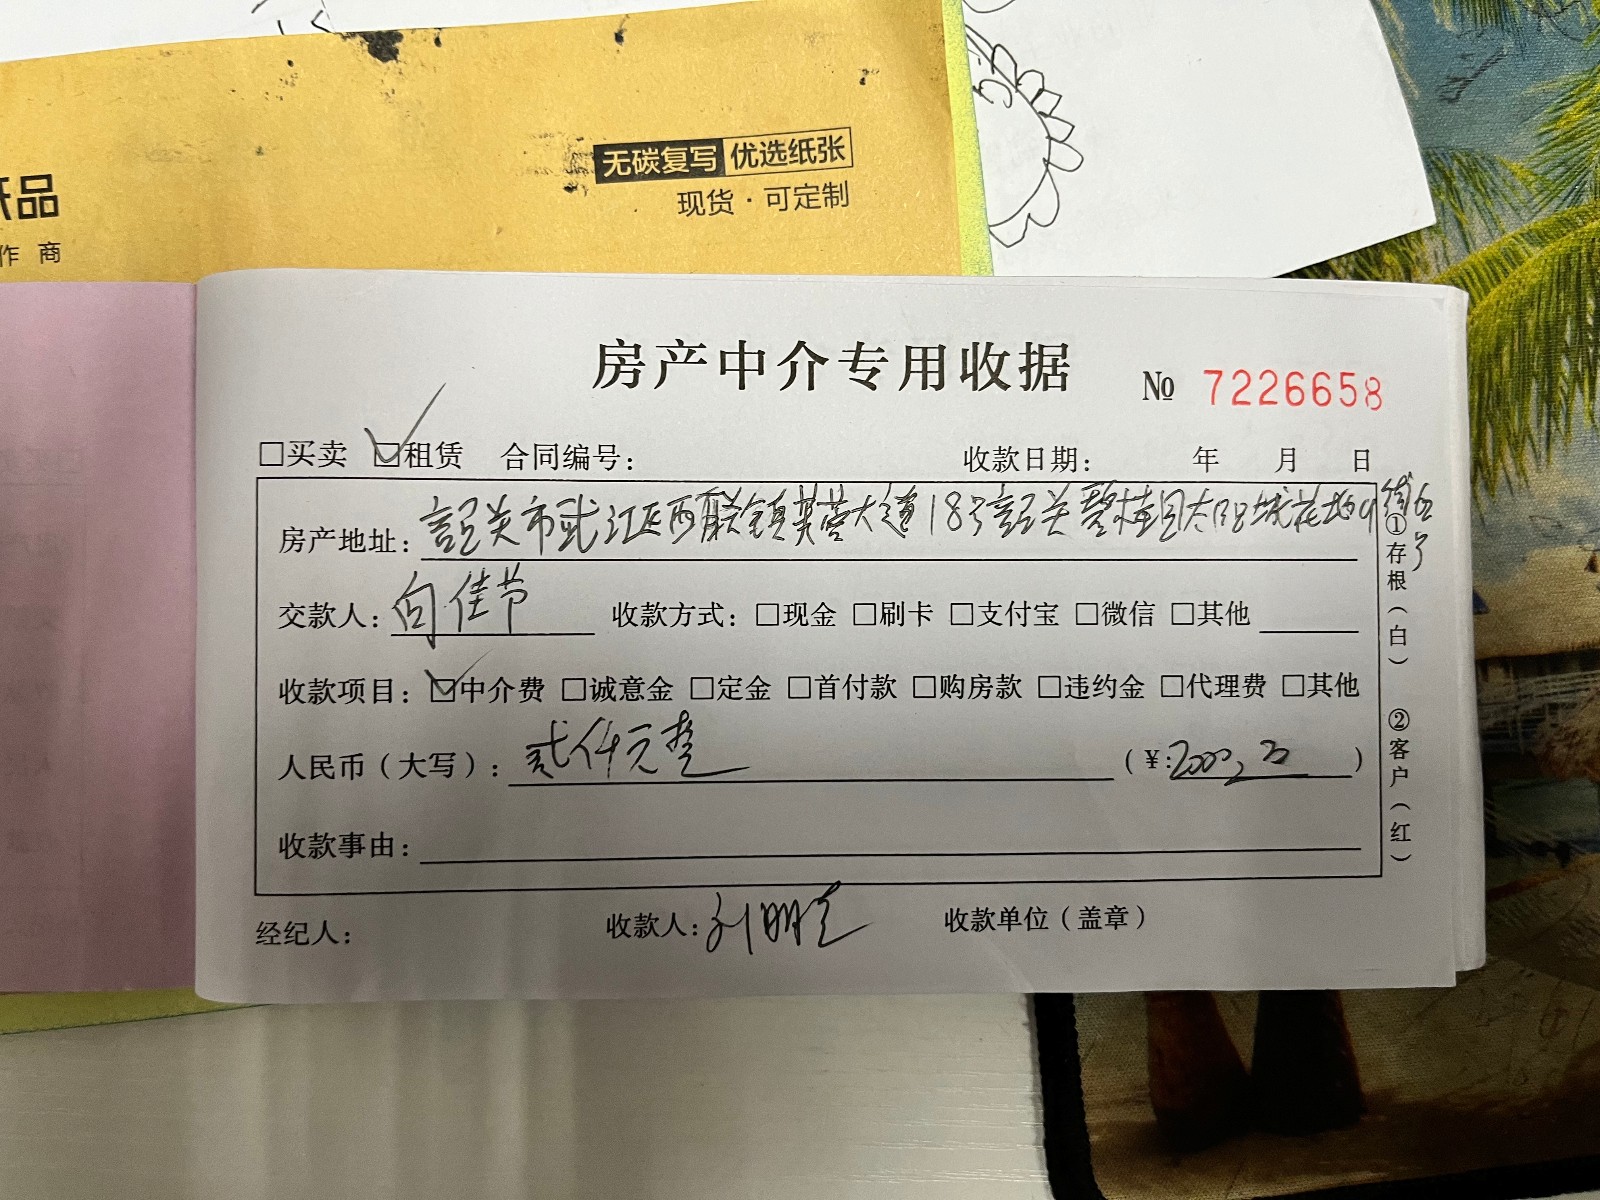 无碳复写 优选纸张
现货·可定制
纸品
作 商
房产中介专用收据
№ 7226658
□买卖 ☑租赁 合同编号： 收款日期： 年 月 日
房产地址：韶关市武江区西联镇芙蓉大道18号韶关碧桂园太阳城花地
交款人：向佳节 收款方式：□现金 □刷卡 □支付宝 □微信 □其他
收款项目：☑中介费 □诚意金 □定金 □首付款 □购房款 □违约金 □代理费 □其他
人民币（大写）：贰仟元整 （¥:2000.00）
收款事由：
经纪人： 收款人：刘明 收款单位（盖章）
①存根（白） ②客户（红）